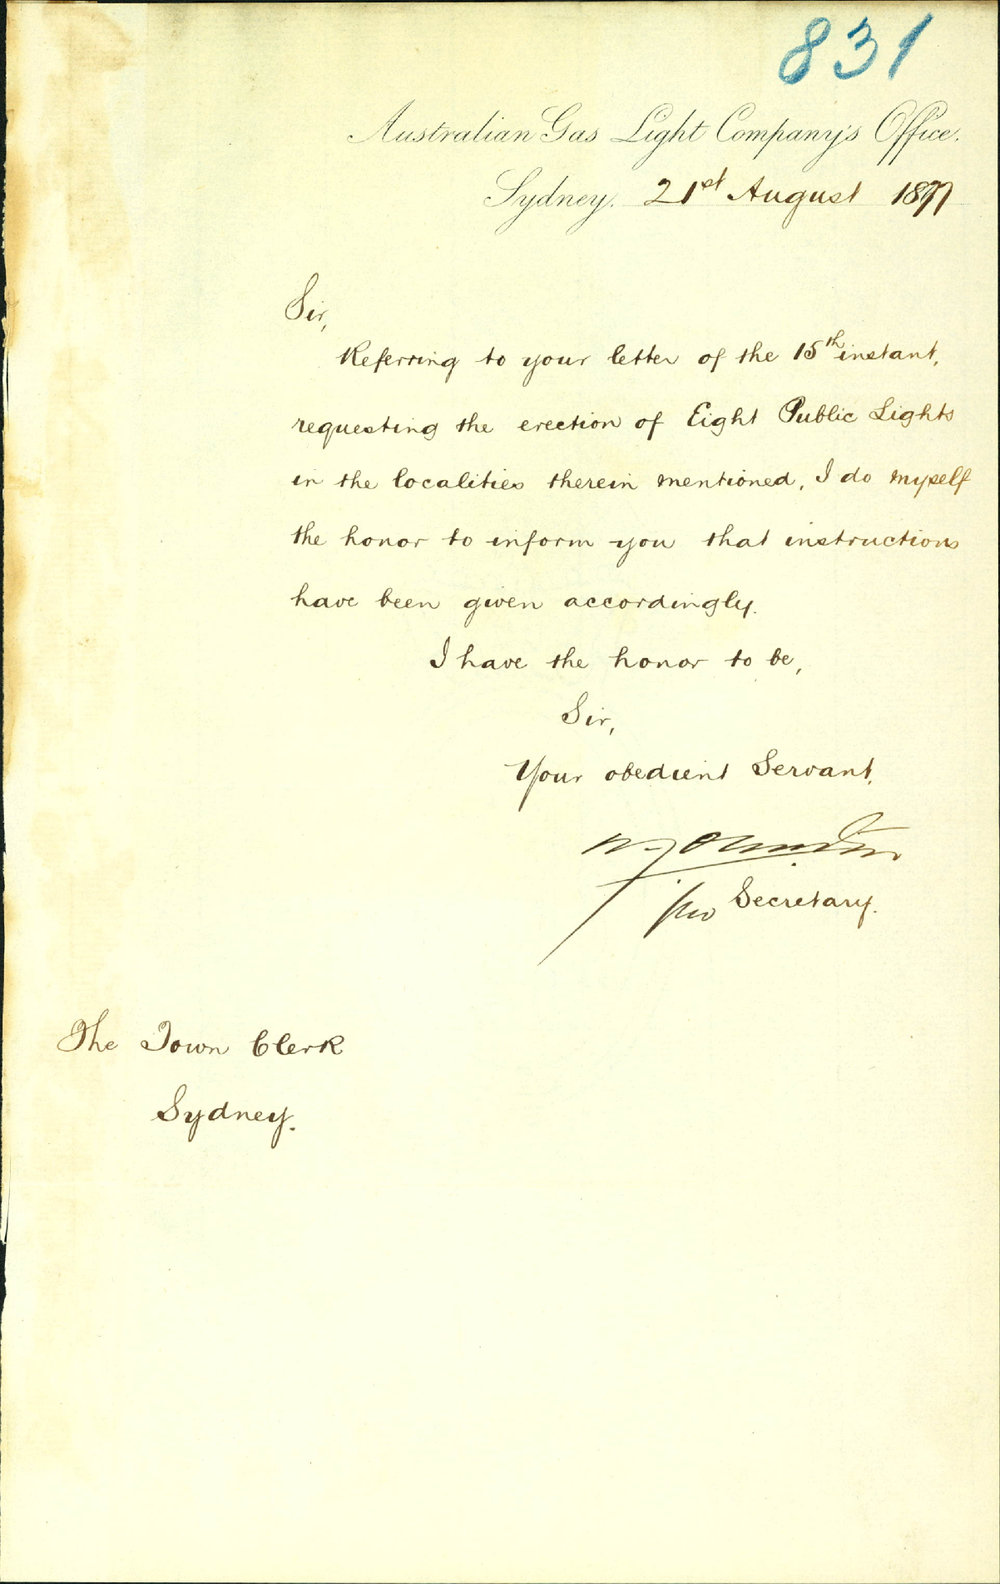 831
Australian Gas Light Company's Office.
Sydney. 21st August 1877
Sir,
Referring to your letter of the 15th instant,
requesting the erection of Eight Public Lights
in the localities therein mentioned, I do myself
the honor to inform you that instructions
have been given accordingly.
I have the honor to be,
Sir,
Your obedient Servant,
pro Secretary.
The Town Clerk
Sydney.